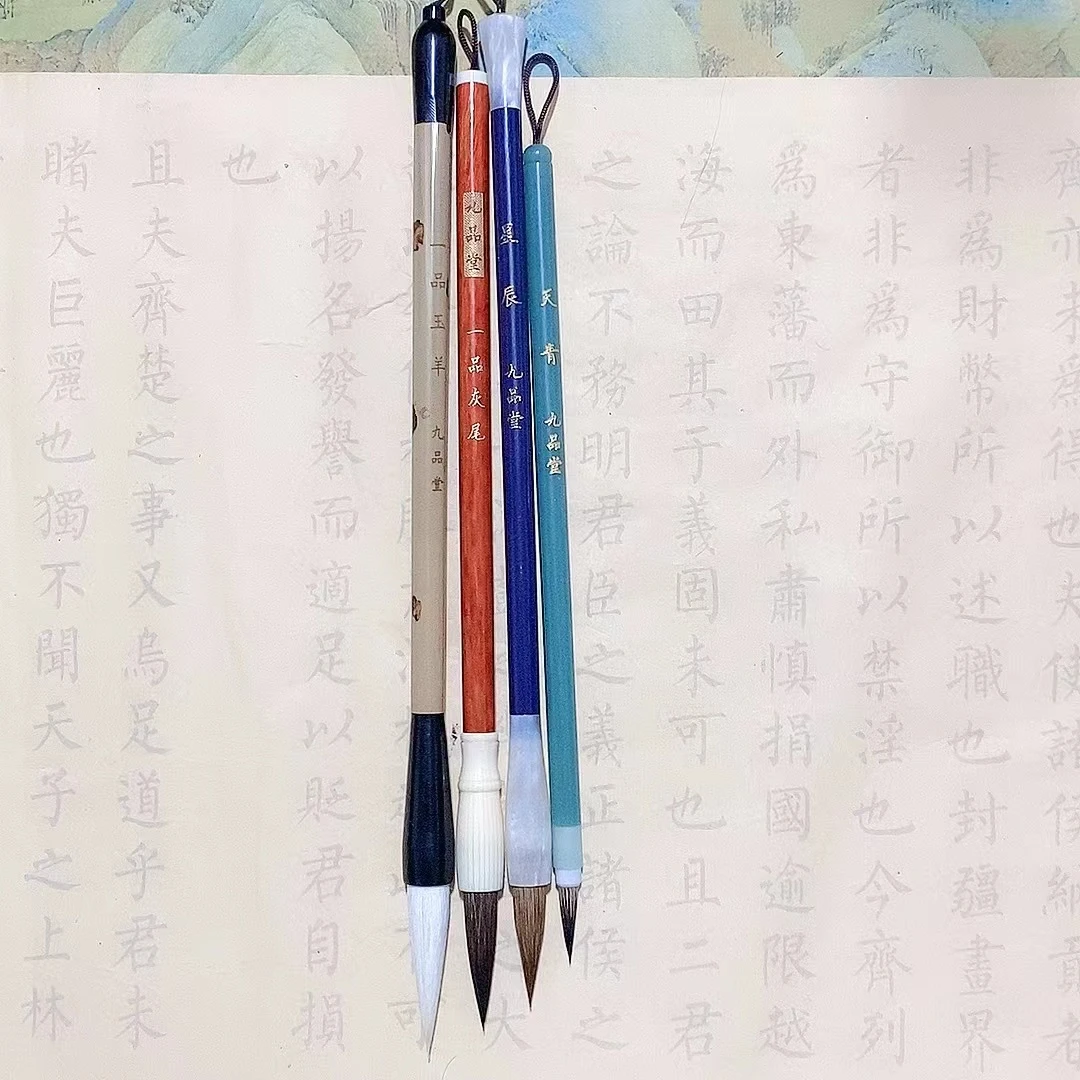 齊亦未爲得也夫使諸侯納貢者
非爲財幣所以述職也封疆畫界
者非爲守御所以禁淫也今齊列
爲東藩而外私肅慎捐國逾限越
海而田其于義固未可也且二君
之論不務明君臣之義正諸侯之
大
以揚名發譽而適足以貶君自損
也
且夫齊楚之事又烏足道乎君未
睹夫巨麗也獨不聞天子之上林
一品玉羊 九品堂
九品堂 一品灰尾
星辰 九品堂
天青 九品堂